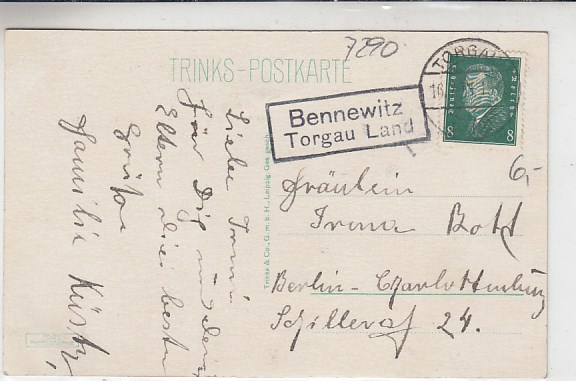 7290
TRINKS-POSTKARTE
TORGAU
16
Deutsches Reich
8 8
Bennewitz
Torgau Land
6,-
Liebe Irmi
Für Dig und dein
Eltern die besten
Grüße
Familie
Trinks & Co., G. m. b. H., Leipzig. Ges. gesch.
Fräulein
Irma Bott
Berlin-Charlottenburg
24.